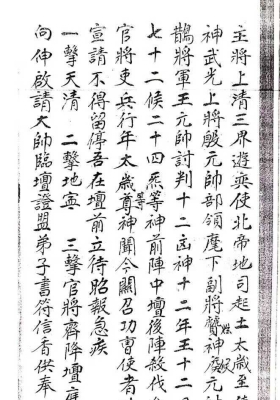 主將上清三界遊奕使北帝地司起土太歲至德
神武光上將殷元帥部領麾下副將聾神殷元神
鵲將軍王元帥討判十二凶神十二年王十二月
七十二候二十四炁等神前陣中壇後陣絞代
官將吏兵行年太歲等尊神聞今關召功曹使者
宣請不得留停吾在壇前立待昭報急疾
一擊天清 二擊地寧 三擊官將齊降壇庭
向伸啟請大帥臨壇證盟弟子書符信香供奉